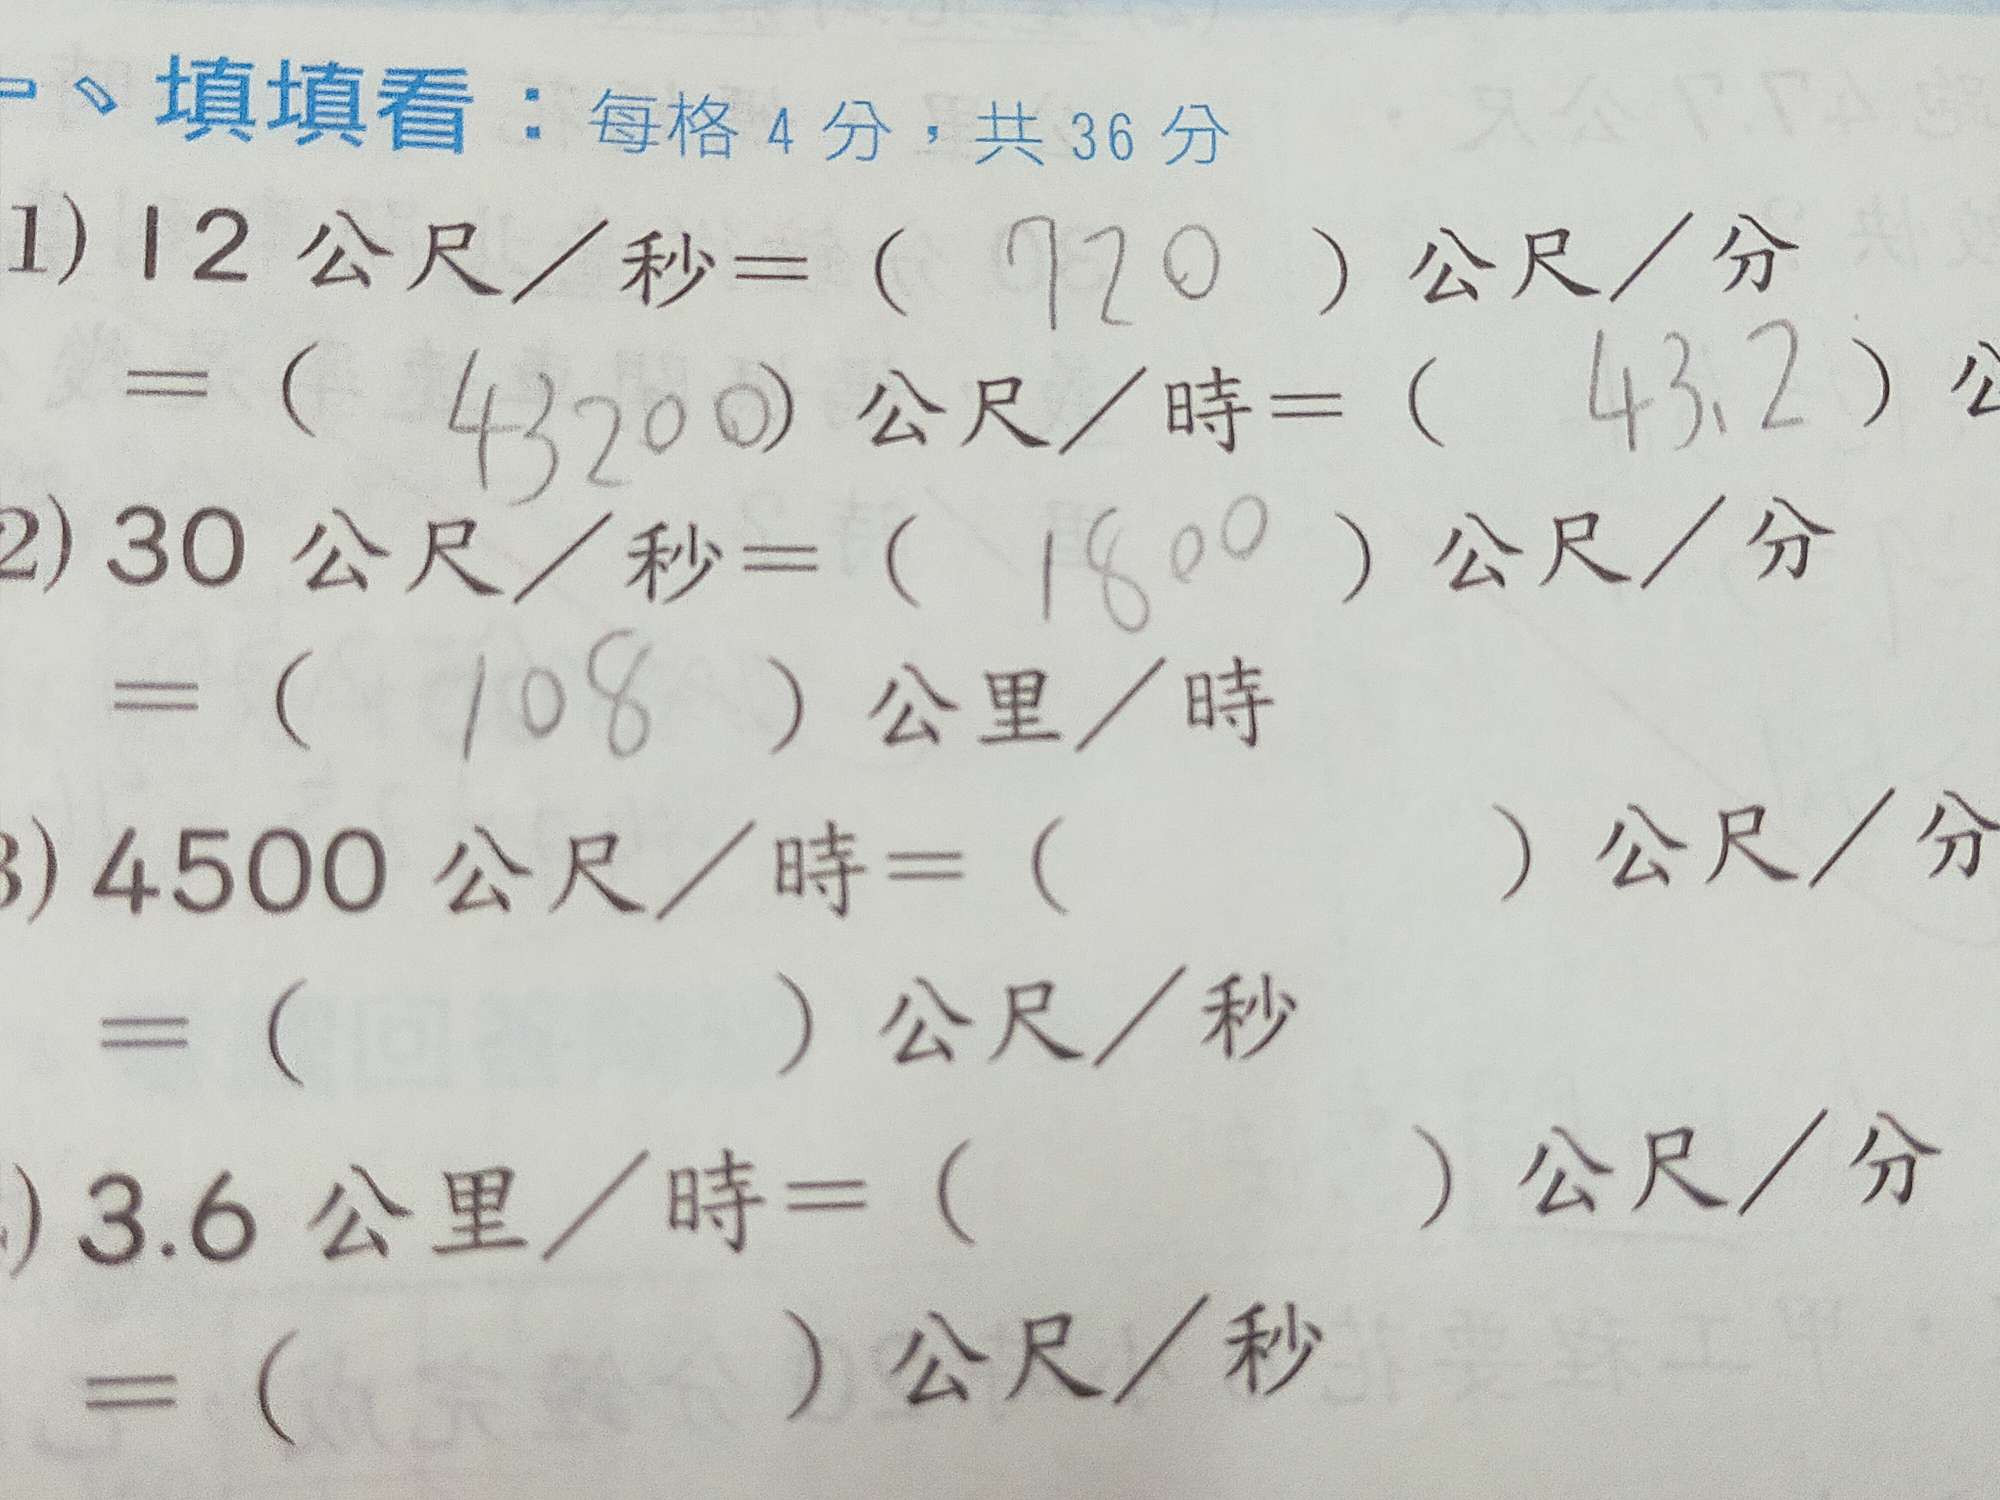 一、填填看：每格 4 分，共 36 分
1) 12 公尺／秒＝（ 720 ）公尺／分
＝（ 43200）公尺／時＝（ 43.2 ）公
2) 30 公尺／秒＝（ 1800 ）公尺／分
＝（ 108 ）公里／時
3) 4500 公尺／時＝（ ）公尺／分
＝（ ）公尺／秒
) 3.6 公里／時＝（ ）公尺／分
＝（ ）公尺／秒